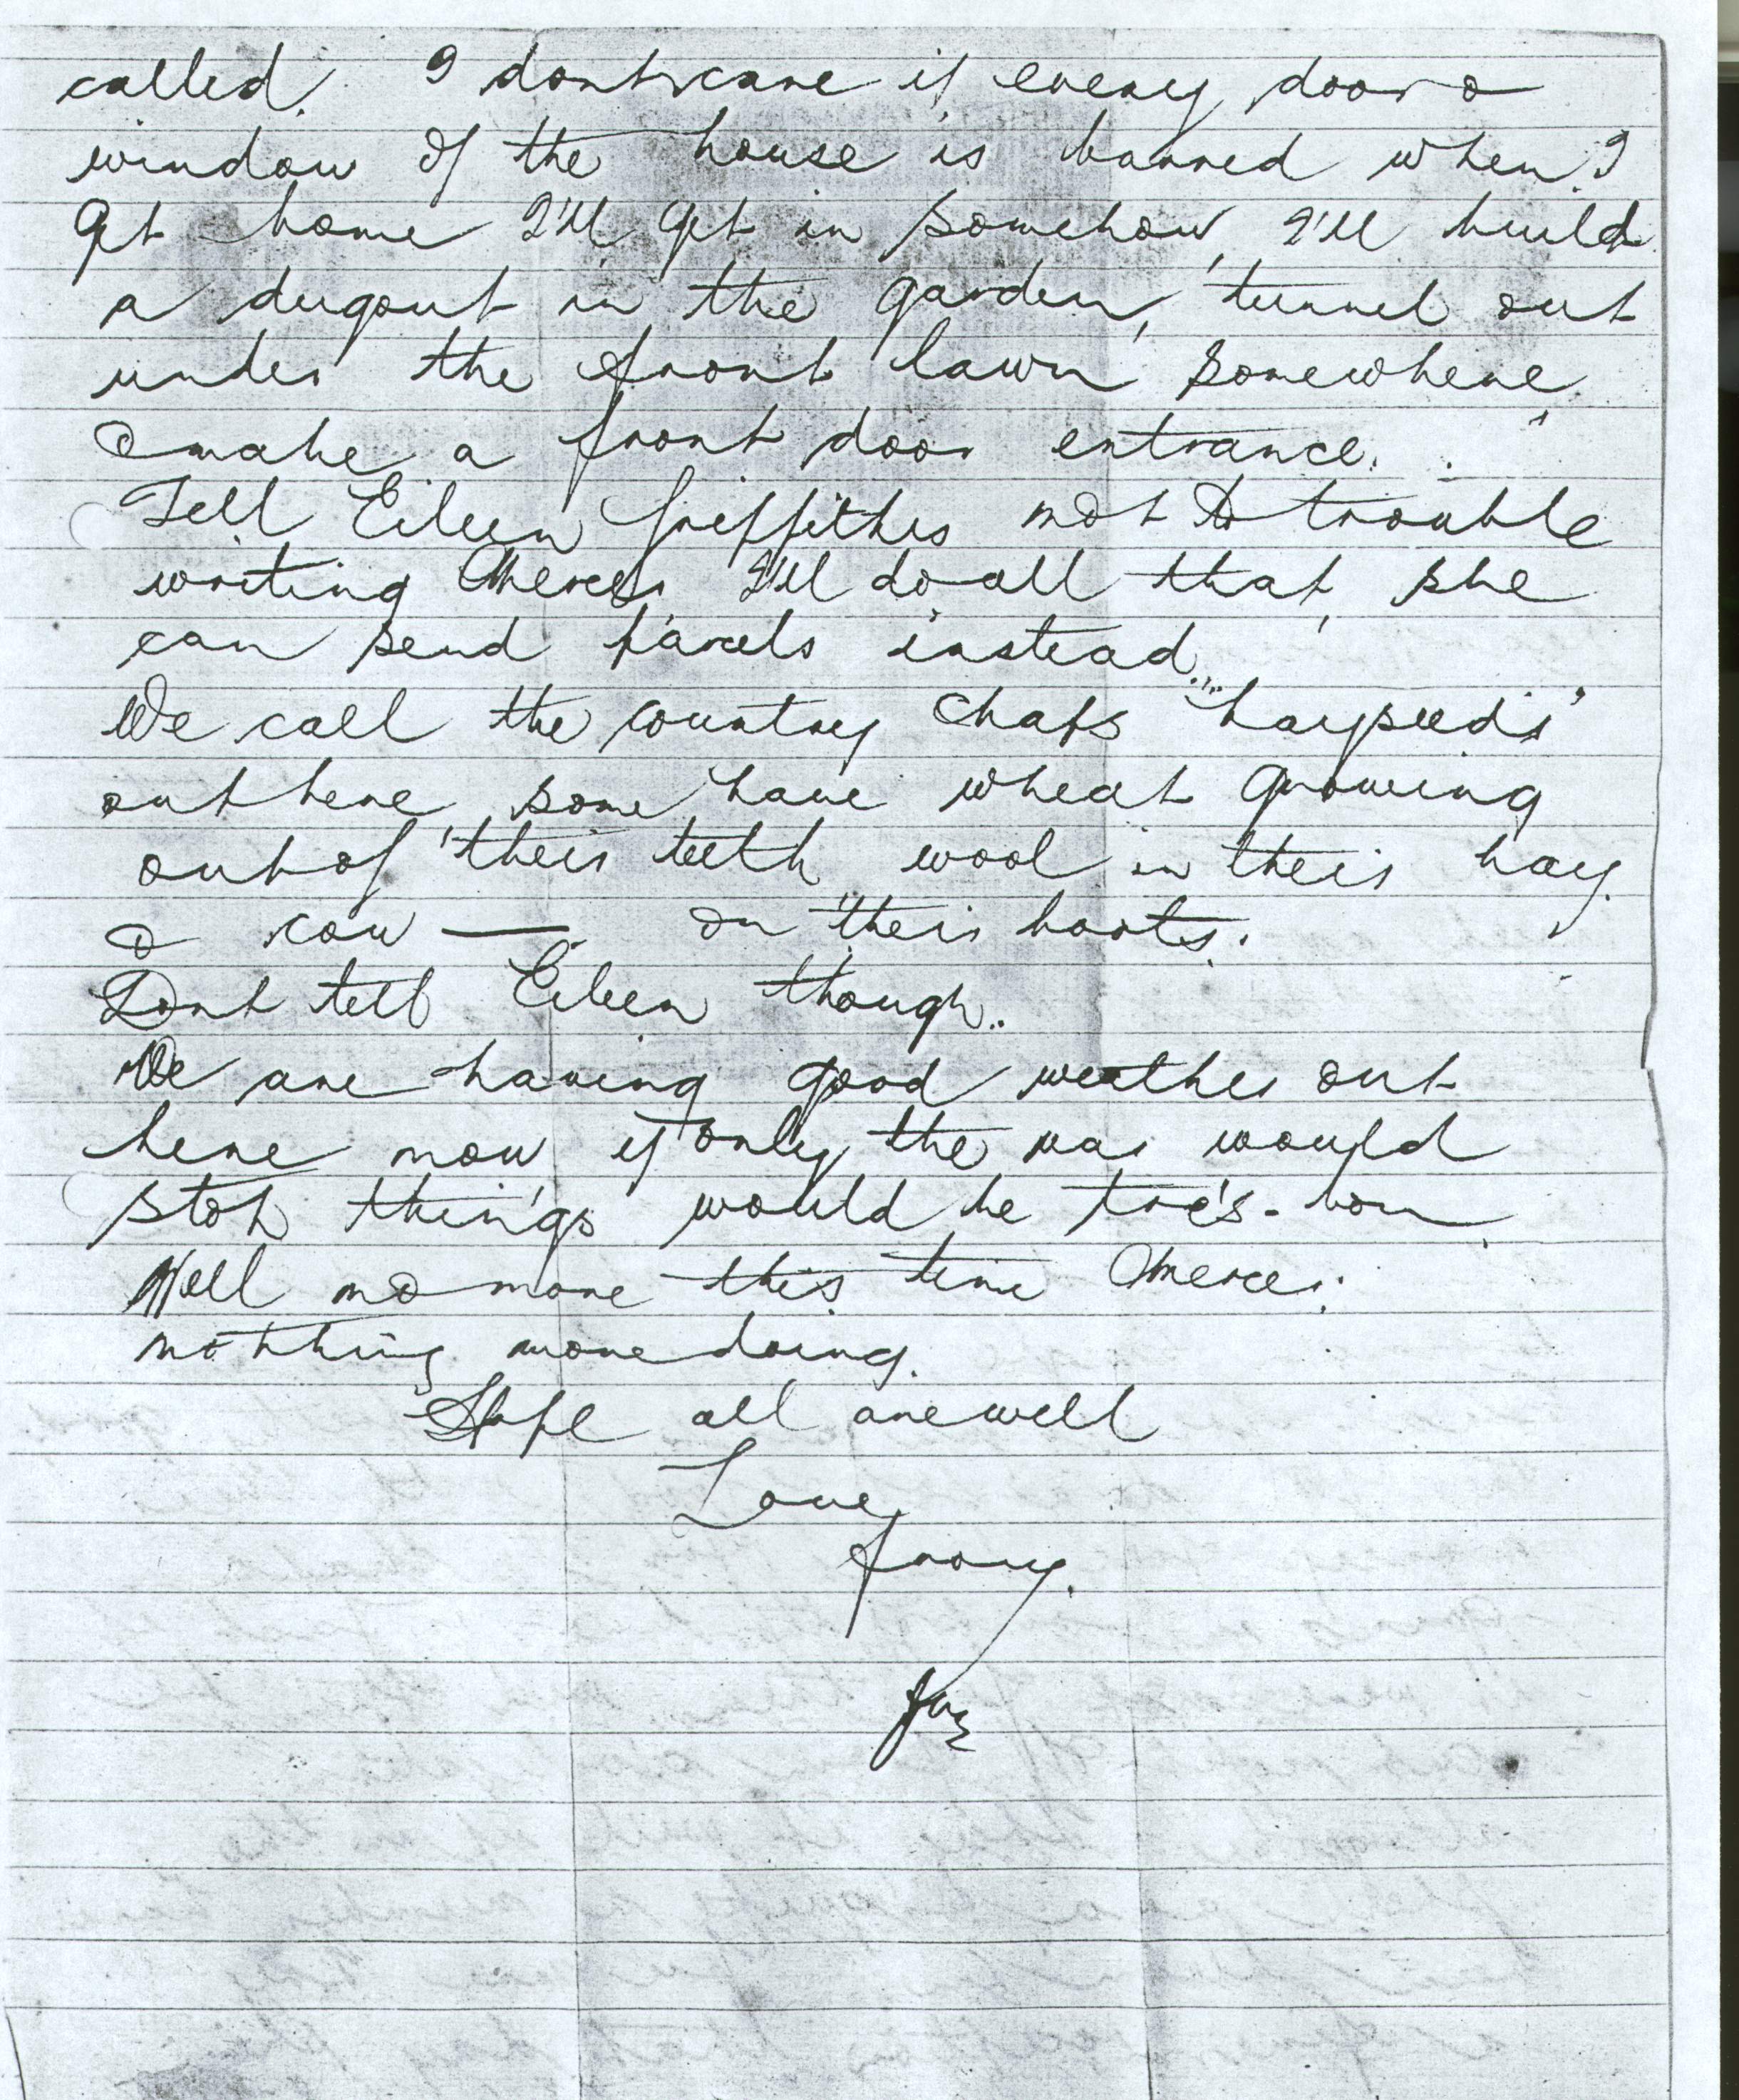 called. I dont care if every door &
window of the house is barred when I
get home I'll get in somehow, I'll build
a dugout in the garden, tunnel out
under the front lawn somewhere
& make a front door entrance.
Tell Eileen Griffiths not to trouble
writing Merce, I'll do all that, she
can send parcels instead.
We call the country chaps "hayseeds"
out here, some have wheat growing
out of their teeth wool in their hay
& cow — on their boots.
Dont tell Eileen though.
We are having good weather out
here now if only the war would
stop things would be trés-bon.
Well no more this time Merce.
nothing more doing.
Hope all are well
Love